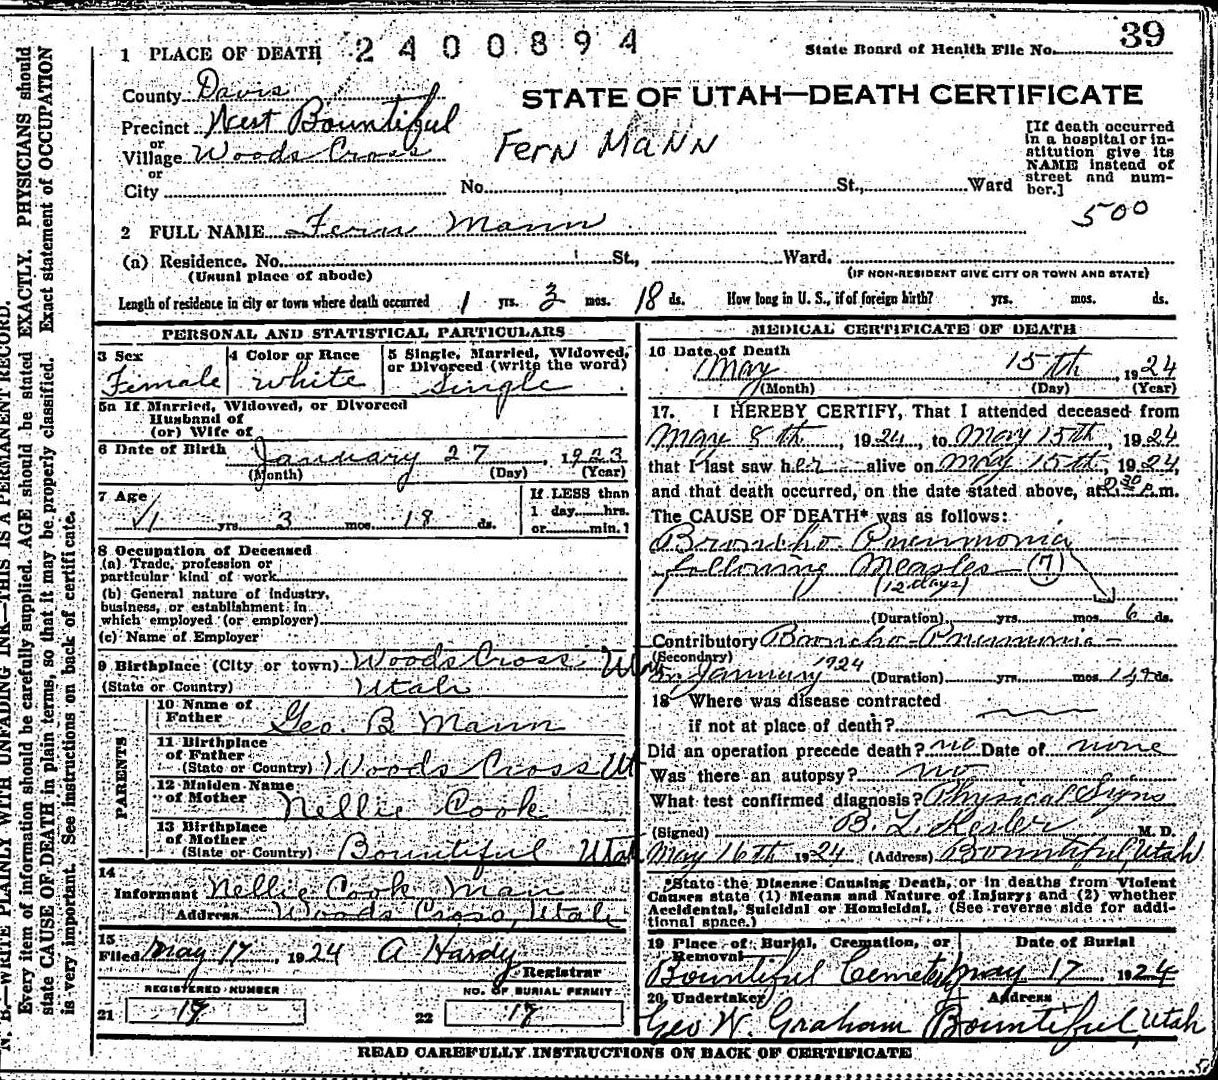 39
2400894
State Board of Health File No.
1 PLACE OF DEATH
County Davis
STATE OF UTAH—DEATH CERTIFICATE
Precinct West Bountiful
or
Village Woods Cross
Fern Mann
[If death occurred in a hospital or institution give its NAME instead of street and number.]
or
City No. St., Ward
500
2 FULL NAME Fern Mann
(a) Residence. No. St., Ward.
(Usual place of abode) (IF NON-RESIDENT GIVE CITY OR TOWN AND STATE)
Length of residence in city or town where death occurred 1 yrs. 3 mos. 18 ds. How long in U. S., if of foreign birth? yrs. mos. ds.
PERSONAL AND STATISTICAL PARTICULARS
3 Sex
Female
4 Color or Race
White
5 Single, Married, Widowed,
or Divorced (write the word)
Single
5a If Married, Widowed, or Divorced
Husband of
(or) Wife of
6 Date of Birth January 27, 1923
(Month) (Day) (Year)
7 Age
1 yrs. 3 mos. 18 ds.
If LESS than
1 day hrs.
or min.
8 Occupation of Deceased
(a) Trade, profession or
particular kind of work
(b) General nature of industry,
business, or establishment in
which employed (or employer)
(c) Name of Employer
9 Birthplace (City or town) Woods Cross Utah
(State or Country) Utah
PARENTS
10 Name of
Father Geo. B Mann
11 Birthplace
of Father
(State or Country) Woods Cross Ut
12 Maiden Name
of Mother Nellie Cook
13 Birthplace
of Mother
(State or Country) Bountiful Utah
14
Informant Nellie Cook Man
Address Woods Cross, Utah
15
Filed May 17 1924 A Hardy
Registrar
REGISTERED NUMBER NO. OF BURIAL PERMIT
21 19 22 19
MEDICAL CERTIFICATE OF DEATH
16 Date of Death
May 15th, 1924
(Month) (Day) (Year)
17. I HEREBY CERTIFY, That I attended deceased from
May 8th, 1924, to May 15th, 1924
that I last saw her alive on May 15th, 1924,
and that death occurred, on the date stated above, at P.m.
The CAUSE OF DEATH* was as follows:
Broncho Pneumonia
following Measles (7)
(12 days)
(Duration) yrs. mos. 6 ds.
Contributory Broncho-Pneumonia -
(Secondary)
in January 1924 (Duration) yrs. mos. ds.
18 Where was disease contracted
if not at place of death?
Did an operation precede death? no Date of none
Was there an autopsy? no
What test confirmed diagnosis? Physical Signs
(Signed) B. L. Kesler M. D.
May 16th 1924 (Address) Bountiful, Utah
*State the Disease Causing Death, or in deaths from Violent
Causes state (1) Means and Nature of Injury; and (2) whether
Accidental, Suicidal or Homicidal. (See reverse side for additional space.)
19 Place of Burial, Cremation, or
Removal
Date of Burial
Bountiful Cemetery May 17 1924
20 Undertaker Address
Geo W. Graham Bountiful, Utah
READ CAREFULLY INSTRUCTIONS ON BACK OF CERTIFICATE
N. B.—WRITE PLAINLY WITH UNFADING INK—THIS IS A PERMANENT RECORD.
Every item of information should be carefully supplied. AGE should be stated EXACTLY. PHYSICIANS should
state CAUSE OF DEATH in plain terms, so that it may be properly classified. Exact statement of OCCUPATION
is very important. See instructions on back of certificate.